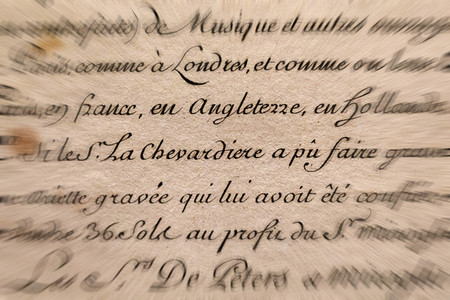 de Musique et autres
comme à Londres, et comme on
en france, en Angleterre, en Hollande
Si le S.r La Chevardiere a pû faire
Ariette gravée qui lui avoit été
36 Sols au profit du S.r
Les S.rs De Peters &